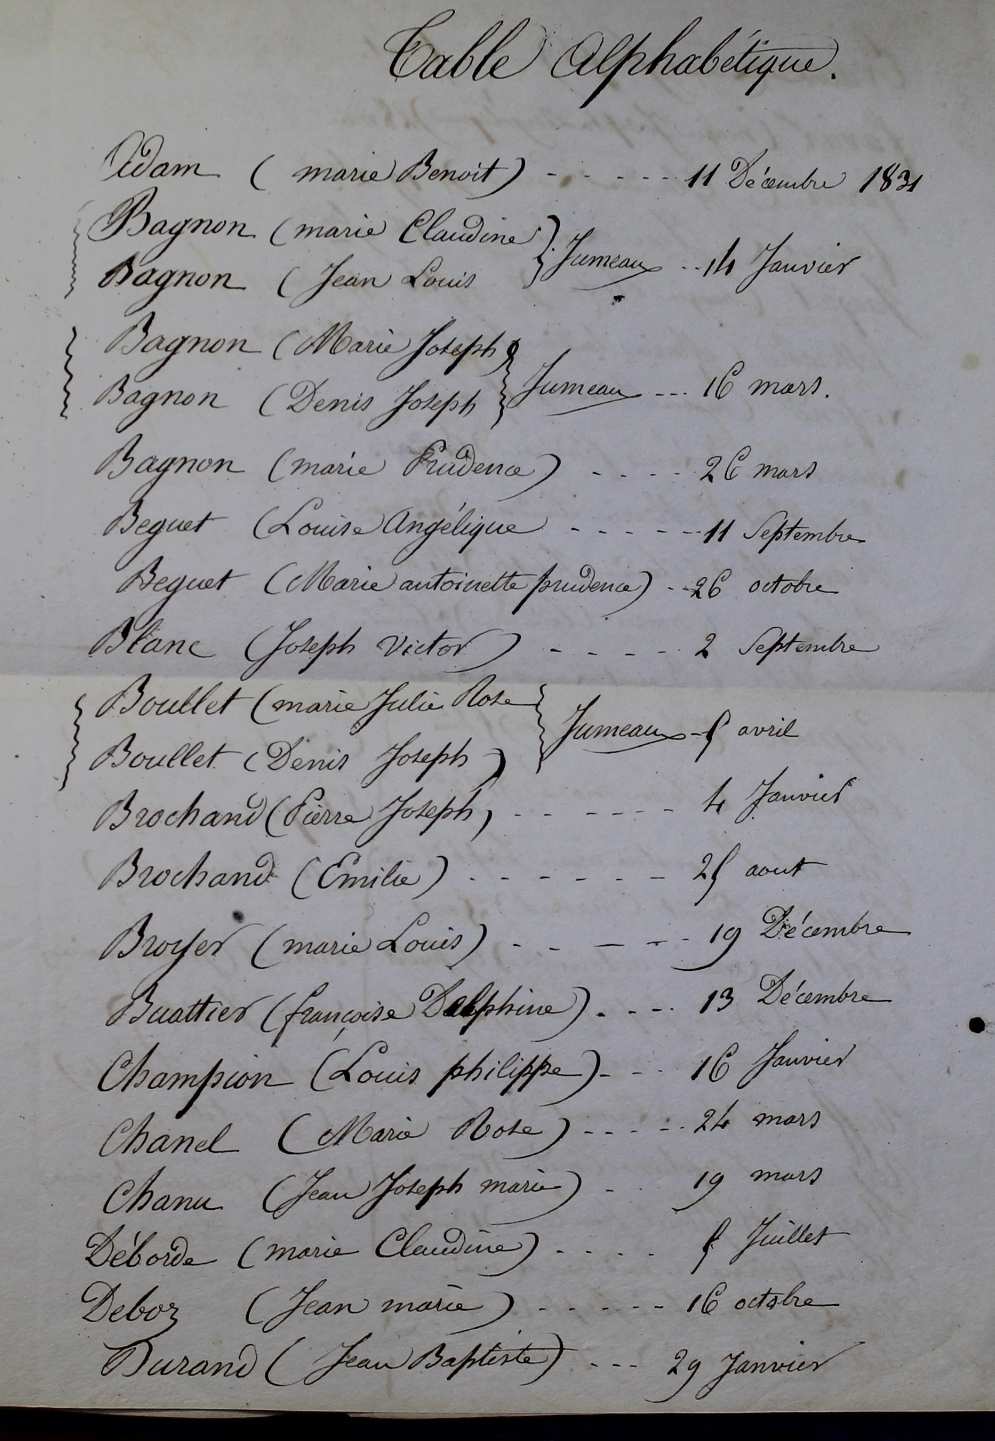 Table Alphabétique.
Adam (marie Benoit) - - - - - 11 Décembre 1831
Bagnon (marie Claudine)
Bagnon (Jean Louis } Jumeaux - - 14 Janvier
Bagnon (Marie Joseph)
Bagnon (Denis Joseph } Jumeaux - - - 16 mars.
Bagnon (marie Prudence) - - - - 26 mars
Beguet (Louise Angélique - - - - - 11 Septembre
Beguet (Marie antoinette prudence) - - 26 octobre
Blanc (Joseph Victor) - - - - - 2 Septembre
Boullet (marie Julie Rose
Boullet (Denis Joseph) } Jumeaux - 5 avril
Brochand (Pierre Joseph) - - - - - - 4 Janvier
Brochand (Emilie) - - - - - - 25 aout
Broyer (marie Louis) - - - - - 19 Décembre
Buattier (françoise Delphine) - - - - 13 Décembre
Champion (Louis philippe) - - - 16 Janvier
Chanel (Marie Rose) - - - - - 24 mars
Chanu (Jean Joseph marie) - - 19 mars
Déborde (marie Claudine) - - - - 5 Juillet
Deboz (Jean marie) - - - - - - 16 octobre
Durand (Jean Baptiste) - - - 29 Janvier